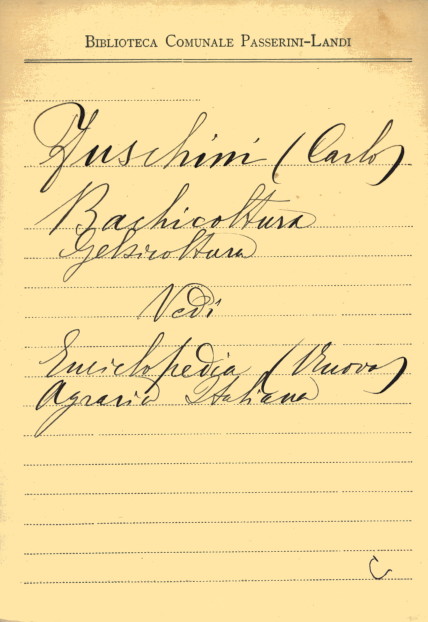 BIBLIOTECA COMUNALE PASSERINI-LANDI
Fuschini (Carlo)
Bachicoltura
Gelsicoltura
Vedi
Enciclopedia (Nuova)
Agraria Italiana
C